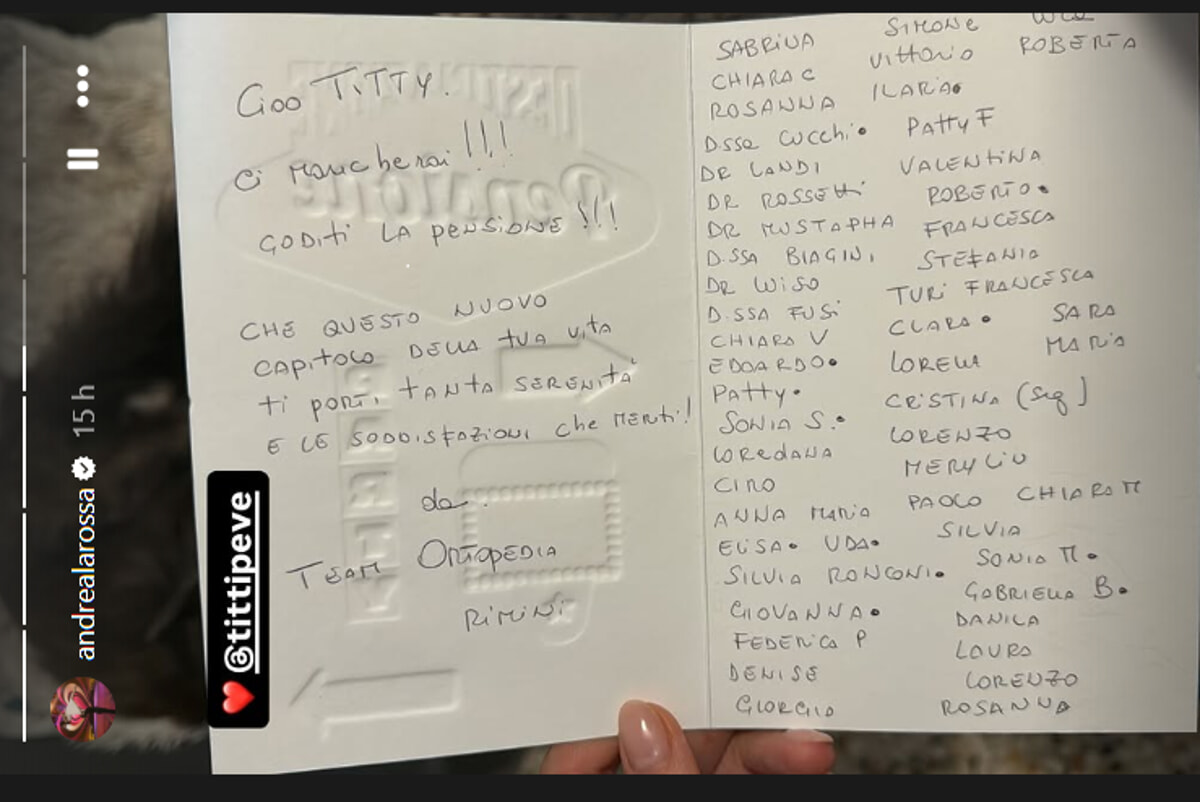 Ciao TITTY.
Ci mancherai!!!
GODITI LA PENSIONE!!!
CHE QUESTO NUOVO
CAPITOLO DELLA TUA VITA
TI PORTI TANTA SERENITA'
E LE SODDISFAZIONI che MERITI!
da
TEAM ORTOPEDIA
RIMINI
SABRINA SIMONE
CHIARA C VITTORIO ROBERTA
ROSANNA ILARIA
D.ssa CUCCHI PATTY F
DR LANDI VALENTINA
DR ROSSETTI ROBERTO
DR MUSTAPHA FRANCESCA
D.SSA BIAGINI STEFANIA
DR WISO TURI FRANCESCA
D.SSA FUSI CLARA SARA
CHIARA V LORELLA MARIA
EDOARDO CRISTINA (Seg)
PATTY LORENZO
SONIA S. MERY LIU
LOREDANA PAOLO CHIARA M
CIRO SILVIA
ANNA MARIA SONIA M
ELISA UDA GABRIELLA B
SILVIA RONCONI DANILA
GIOVANNA LAURA
FEDERICA P LORENZO
DENISE ROSANNA
GIORGIO
@tittipeve
andrealarossa 15 h